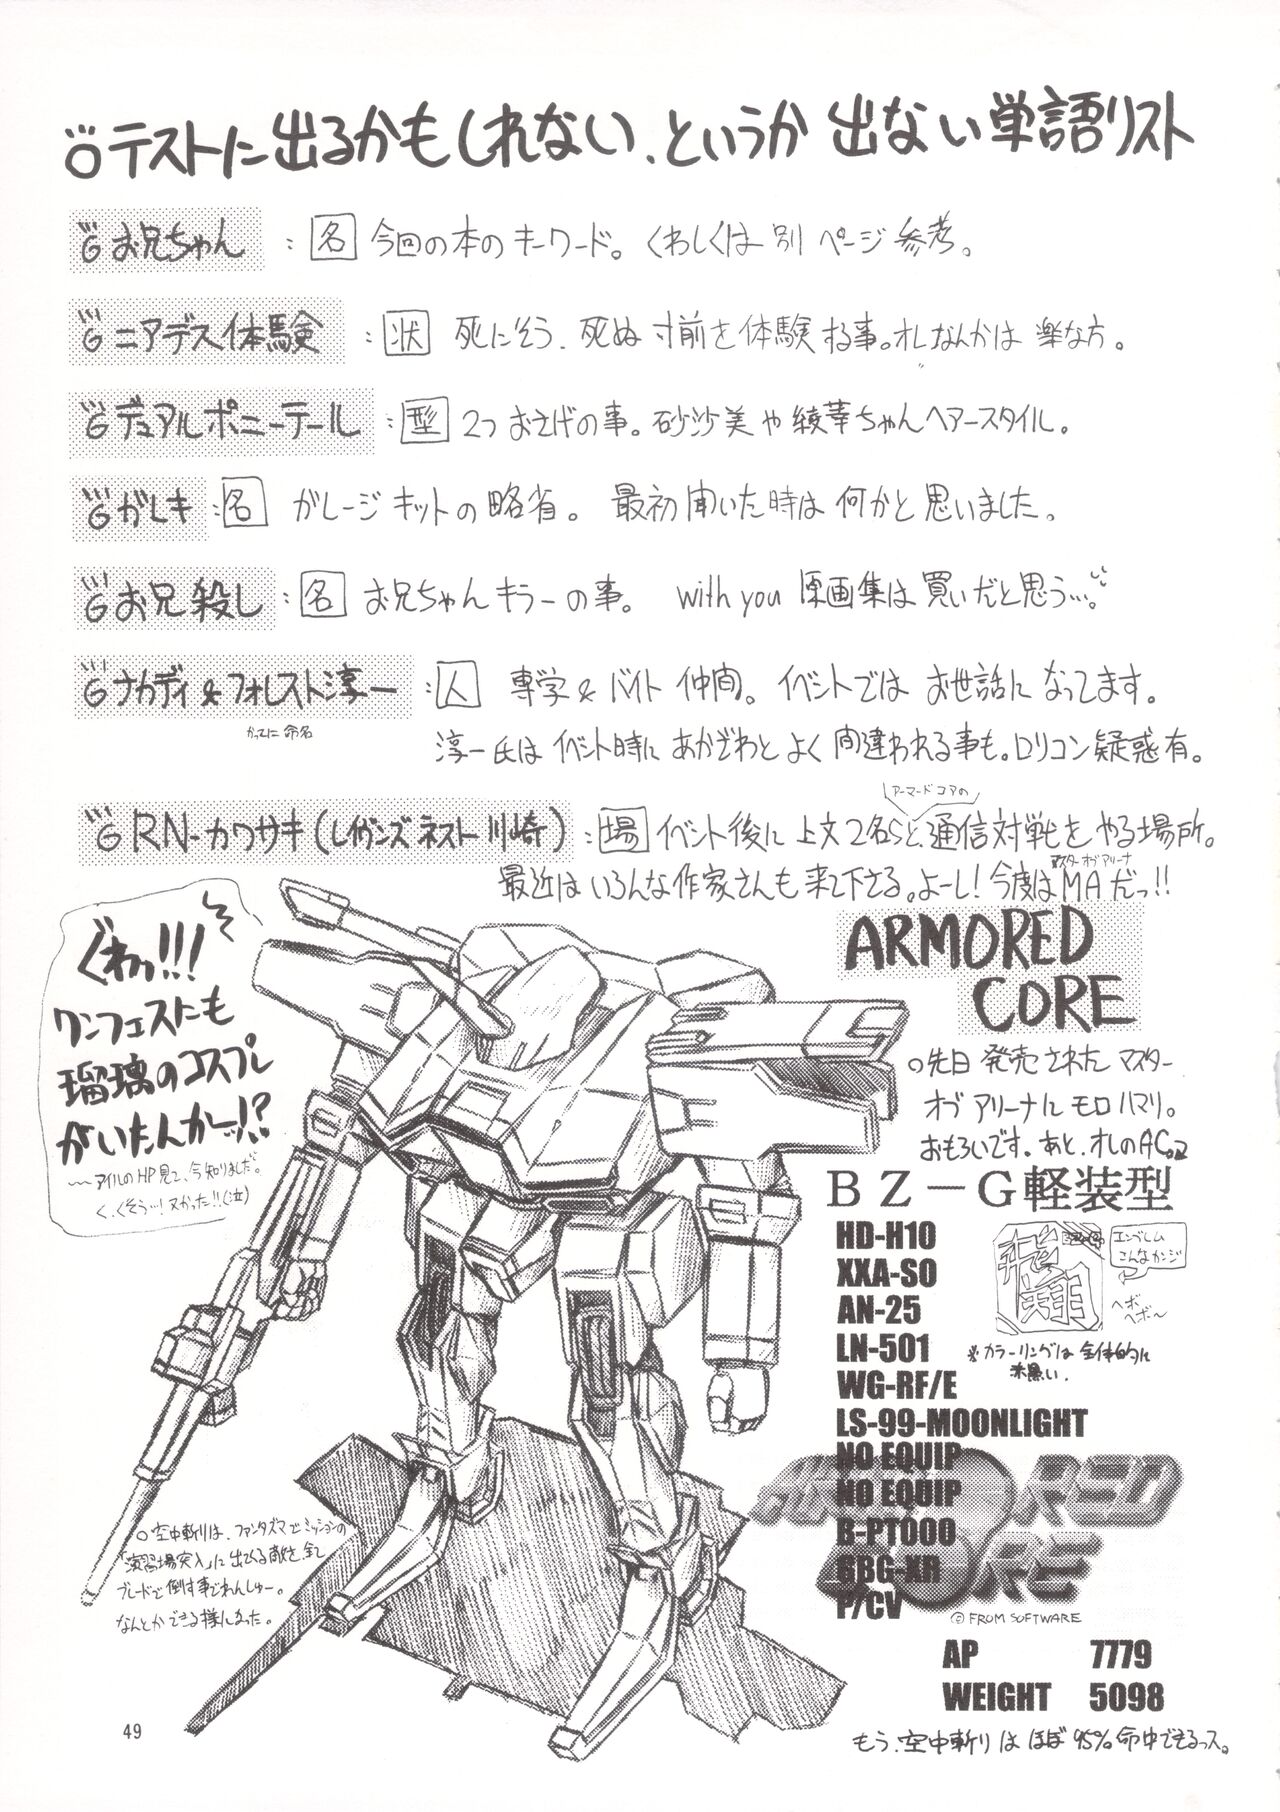 テストに出るかもしれない、というか 出ない単語リスト
お兄ちゃん : 名 今回の本のキーワード。くわしくは 別ページ参考。
ニアデス体験 : 状 死にそう、死ぬ寸前を体験する事。オレなんかは 楽な方。
デュアルポニーテール : 型 2つおさげの事。砂沙美や綾華ちゃんヘアースタイル。
がレキ : 名 がレージキットの略省。 最初聞いた時は何かと思いました。
お兄殺し : 名 お兄ちゃんキラーの事。 with you 原画集は買いだと思う…。
ナカディ&フォレスト淳一 : 人 専学&バイト仲間。イベントではお世話になってます。
かってに命名
淳一氏はイベント時にあかざわとよく間違われる事も。ロリコン疑惑有。
アーマードコアの
RN-カワサキ(レイヴンズネスト川崎) : 場 イベント後に上文2名らと、通信対戦をやる場所。
マスターオブアリーナ
最近はいろんな作家さんも来て下さる。よーし!今度はMAだっ!!
ぐわっ!!!
ワンフェスにも
瑠璃のコスプレ
がいたんかーッ!?
〜アイルのHP見て、今知りました。
く、くそぅ…!ヌかった!!(泣)
ARMORED
CORE
○先日発売されたマスター
オブアリーナにモロハマリ。
おもろいです。あと、オレのACっス
BZ－G軽装型
HD-H10
XXA-SO
AN-25
LN-501
WG-RF/E
LS-99-MOONLIGHT
NO EQUIP
NO EQUIP
B-PT000
GBG-XR
P/CV
飛翔
エンブレム
こんなカンジ
ヘボ
ヘボ〜
※カラーリングは全体的に
赤黒い.
ARMORED
CORE
© FROM SOFTWARE
AP 7779
WEIGHT 5098
もう、空中斬りはほぼ95%命中できるっス。
○空中斬りは、ファンタズマでミッションの
「演習場突入」に出てくる敵を、全て
ブレードで倒す事でれんしゅー。
なんとかできる様になった。
49